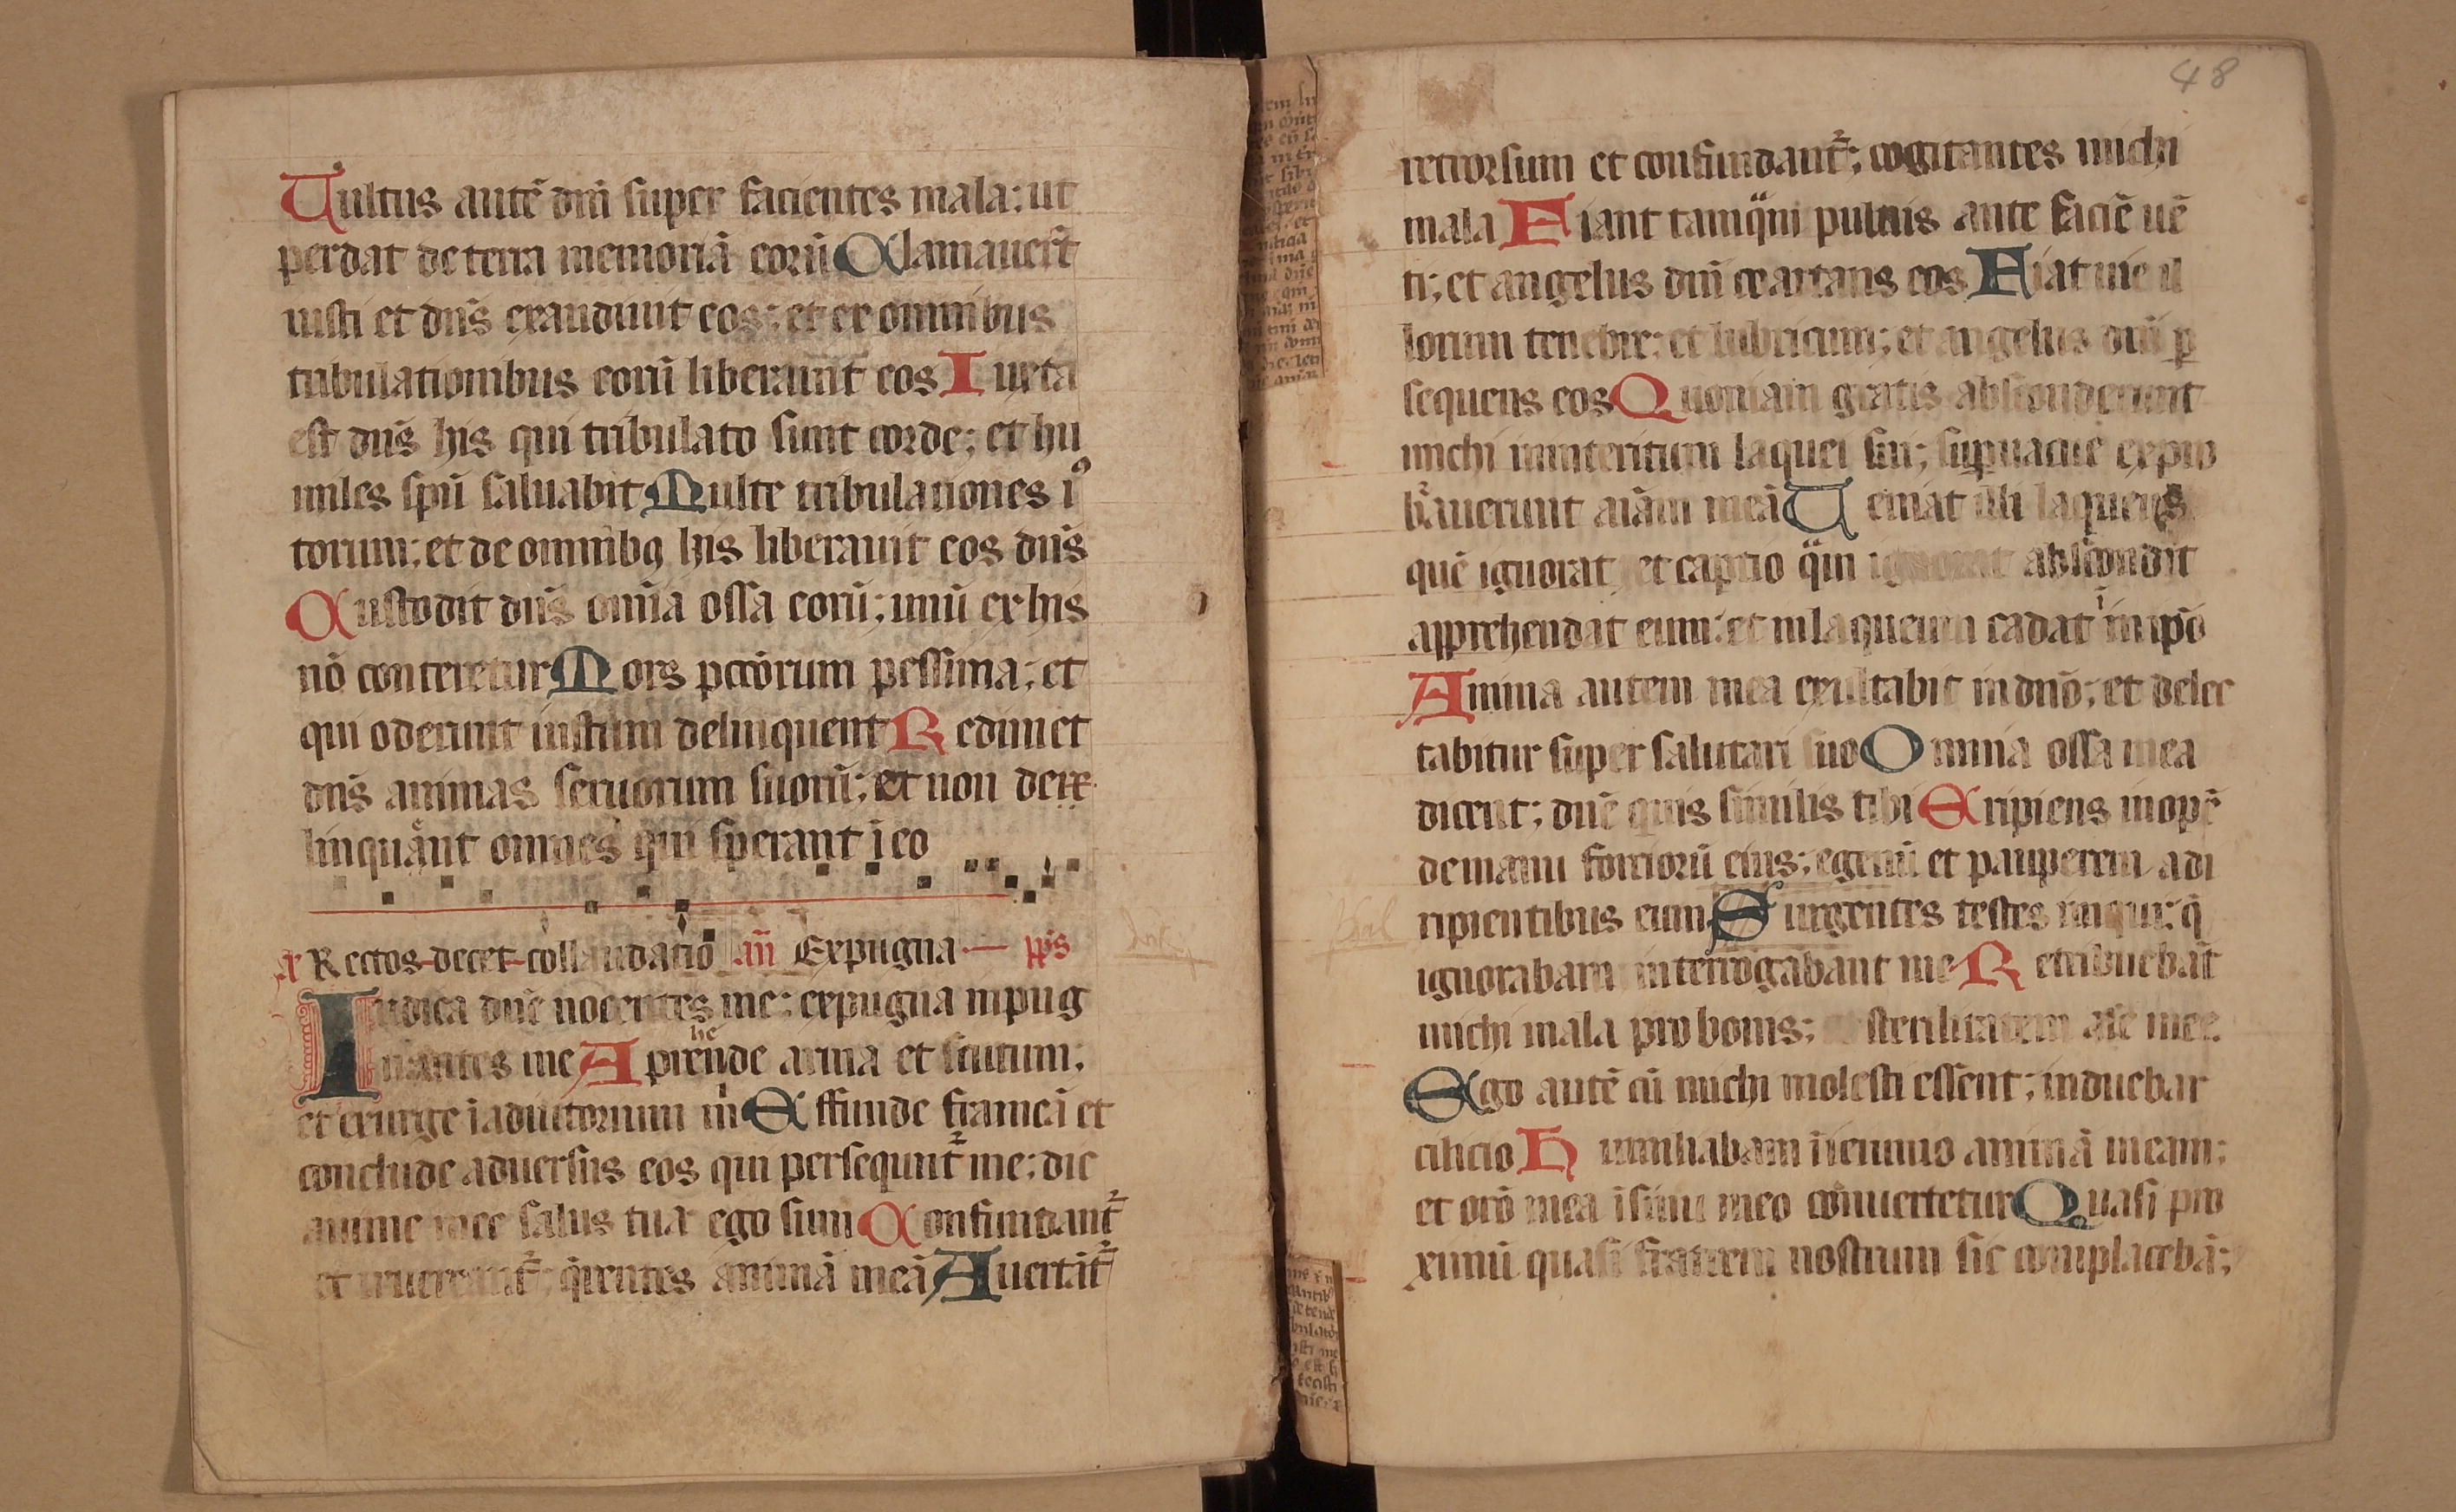 Uultus autē dn̄i super facientes mala; ut
perdat de terra memoriā eorū Clamauer̄t
iusti et dn̄s exaudiuit eos; et ex omnibus
tribulationibus eorū liberauit eos Iuxta
est dn̄s his qui tribulato sunt corde; et hu
miles spū saluabit Multe tribulationes i9
torum; et de omnibꝫ his liberauit eos dn̄s
Custodit dn̄s om̄ia ossa eorū; unū ex his
nō conteretur Mors pcc̄orum pessima; et
qui oderunt iustum delinquent Redimet
dn̄s animas seruorum suorū; et non dere
linquant omnes qui sperant ī eo
Rectos decet collaudatio an̄ Expugna p̄s
Iudica dn̄e nocentes me; expugna inpug
nantes me Aprehende arma et scutum;
et exurge ī adiutorium m̄ Effunde frameā et
conclude aduersus eos qui persequnt᷑ me; dic
anime mee salus tua ego sum Confundant᷑
et reuereant᷑; q̄rentes animā meā Auertāt᷑
48
retrorsum et confundant᷑; cogitantes michi
mala Fiant tamqᵃm puluis ante faciē uē
ti; et angelus dn̄i coartans eos Fiat uie il
lorum tenebre; et lubricum; et angelus dn̄i ꝑ
sequens eos Quoniam gratis absconderunt
michi interitum laquei sui; suꝑuacue expro
bᵃuerunt aīam meā Ueniat illi laqueus
quē ignorat et captio qᵃm abscondit
apprehendat eum; et in laqueum cadat in ip̄o
Anima autem mea exultabit in dn̄o; et delec
tabitur super salutari suo Omnia ossa mea
dicent; dn̄e quis similis tibi Eripiens inopē
de manu fortiorū eius; egenū et pauperem a di
ripientibus eum Surgentes testes iniqui; q̄
ignorabam interrogabant me Retribuebāt
michi mala pro bonis; sterilitatem aīe mee
Ego autē cū michi molesti essent; induebar
cilicio Humiliabam ī ieiunio animā meam;
et orō mea ī sinu meo conuertetur Quasi pro
ximū quasi fratrem nostrum sic complacebā;